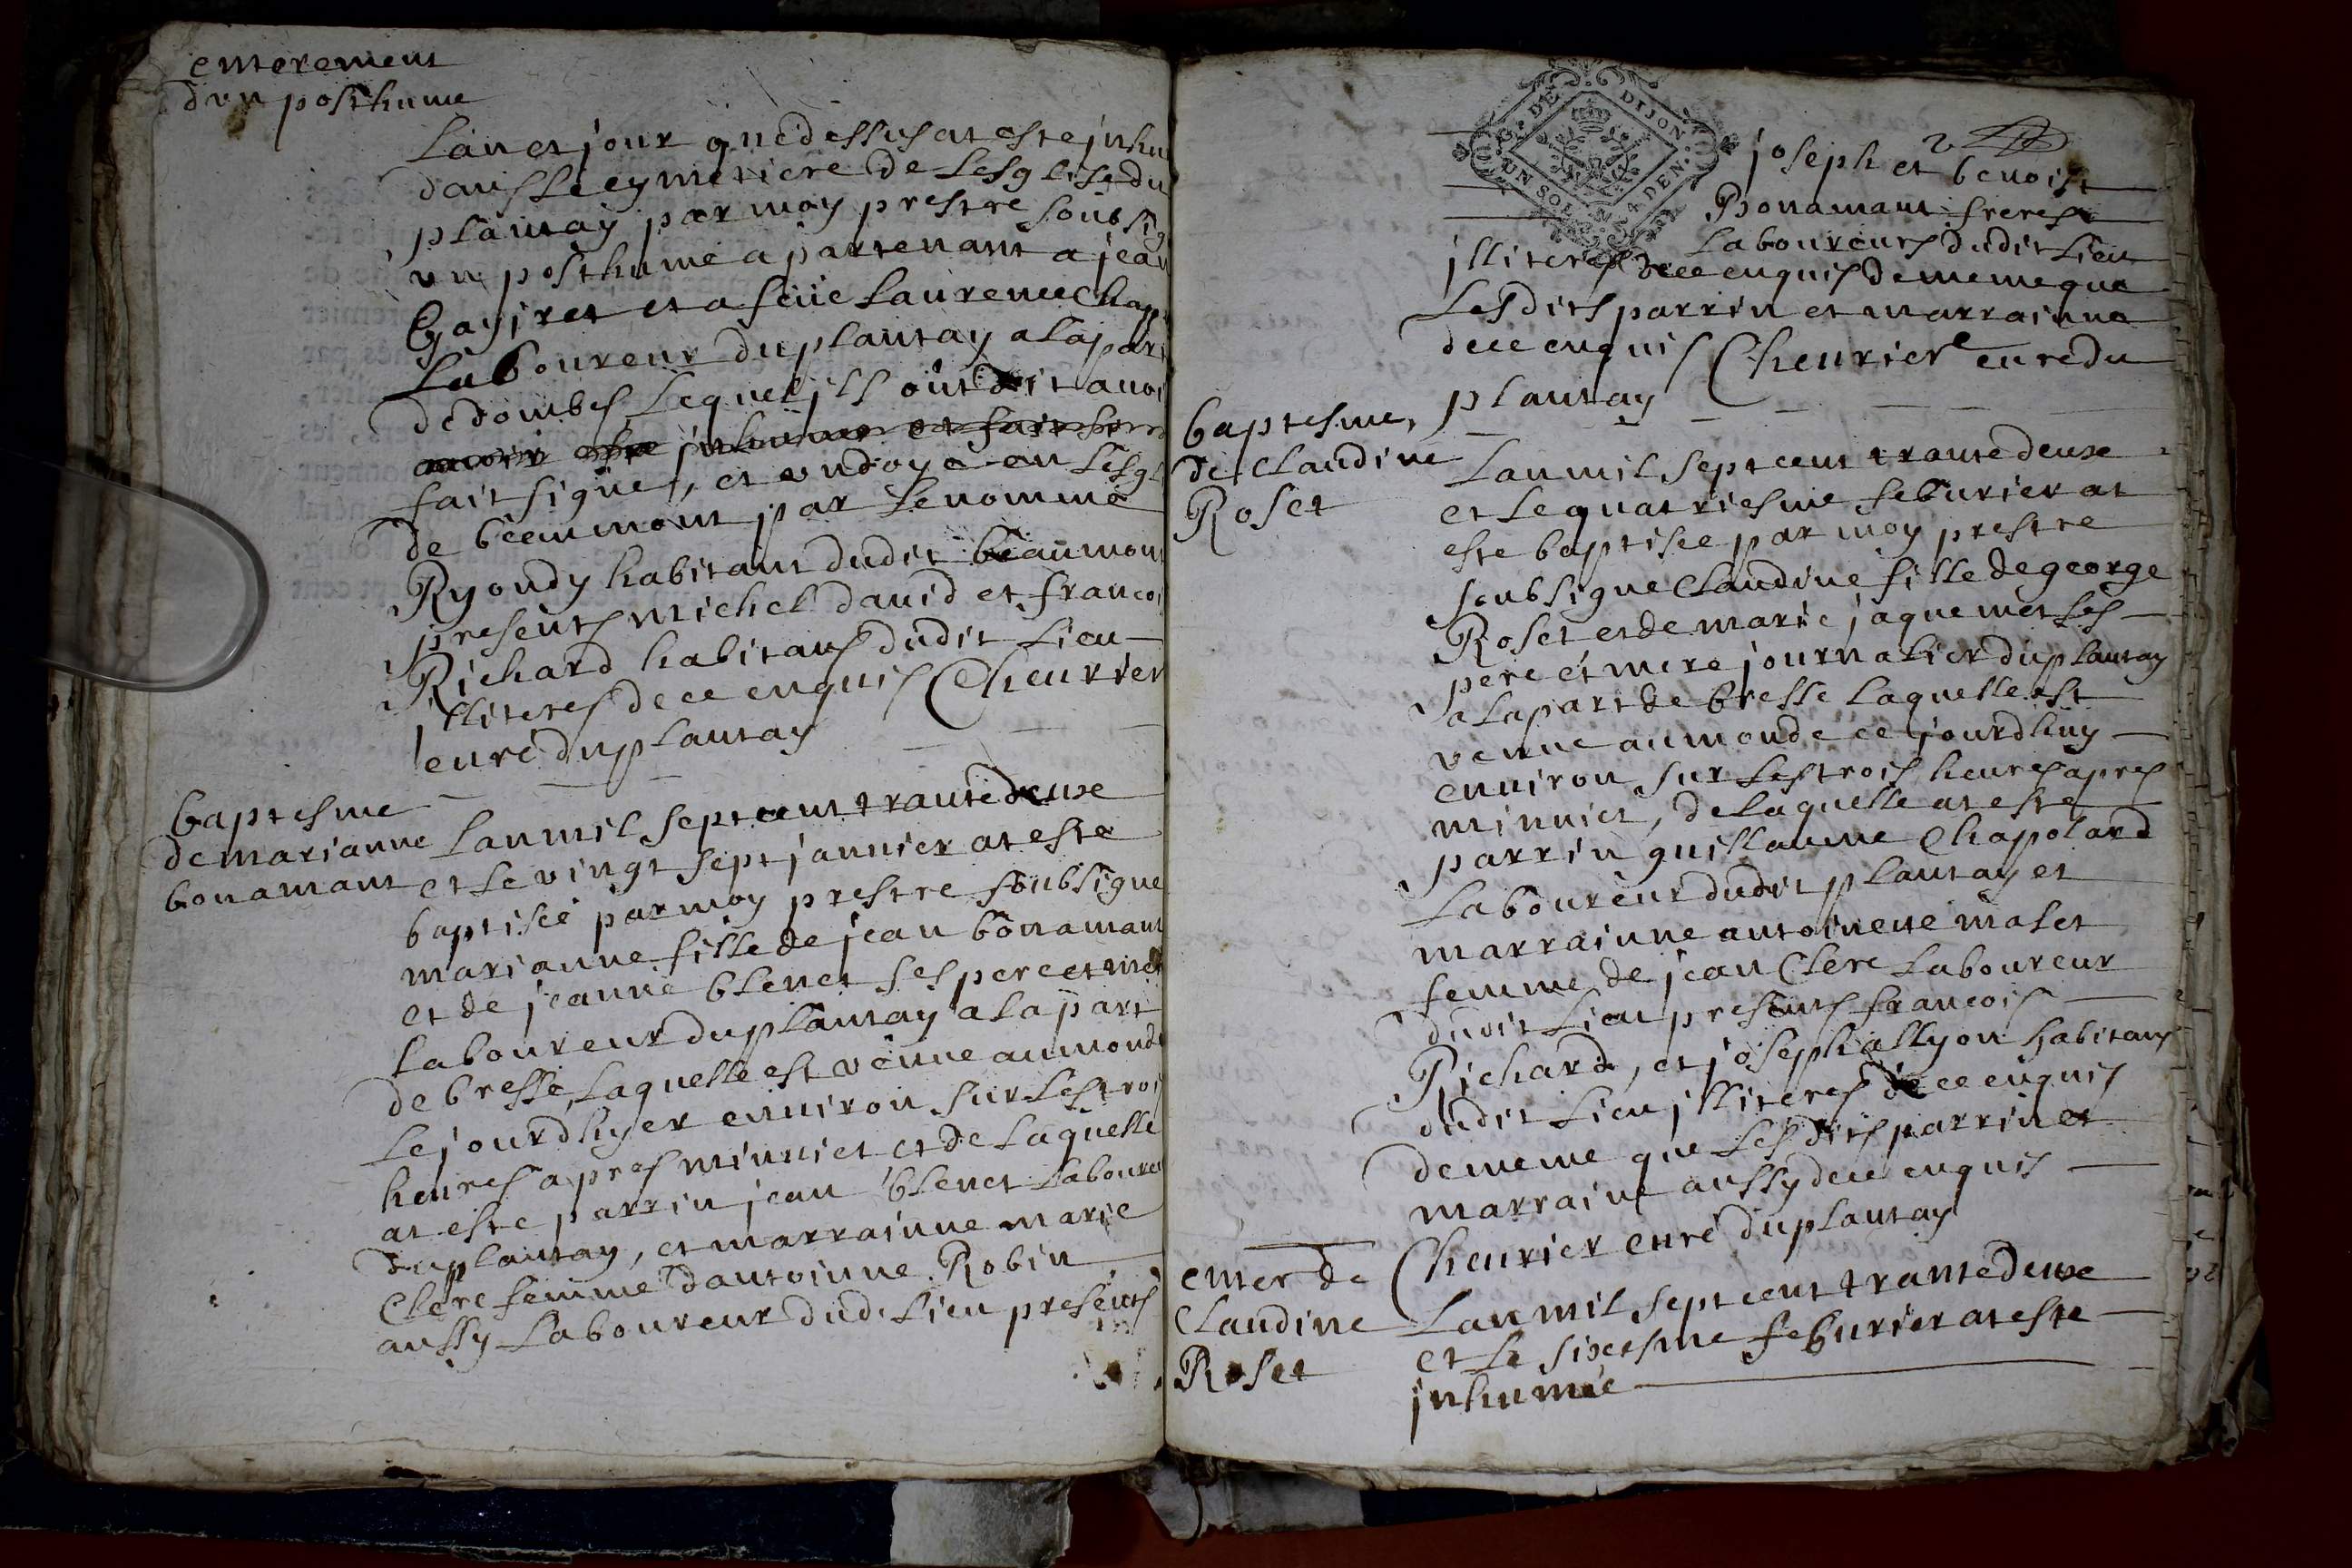 enterement
dun posthume
Lan et jour que dessus at este inhu
dans le cymetiere de Lesglise du
plantay par moy prestre soubsig
un posthume apartenant a jean
Gayjret et a feüe Laurence Chap
Laboureur du plantay a la part
de dombes Lequel ils ont dit auoi
auoir este inhumer et fait
fait signe, et ondoye en Lesgl
de beaumont par Le nomme
Ryondy habitant dudit beaumont
presents michel dauid et francoi
Richard habitans dudit Lieu
illiteres de ce enquis Cheurier
cure du plantay
baptesme
de marianne
bonamant
Lan mil sept cent trante deux
et Le vingt sept januier at este
baptisée par moy prestre soubsigne
marianne fille de jean bonamant
et de jeanne blenet ses pere et mere
Laboureur du plantay a la part
de bresse, Laquelle est venue au monde
Le jourdhyer enuiron sur Les troi
heures apres minuict et de Laquelle
at este parrin jean blenet Laboureu
du plantay, et marrainne marie
Clerc femme dantoinne Robin
aussy Laboureur dud. Lieu presents
G.^D DE DIJON
UN SOL 4 DEN.
joseph et benoist
Bonamant freres
Laboureurs dudit Lieu
illiteres de ce enquis de meme que
Lesdits parrin et marrainne
de ce enquis Cheurier cure du
plantay
baptesme,
de Claudine
Roset
Lan mil sept cent trante deux
et Le quatriesme feburier at
este baptisée par moy prestre
soubsigne Claudine fille de george
Roset et de marie jaquemet ses
pere et mere journalier du plantay
a la part de bresse Laquelle est
venue au monde ce jourdhuy
enuiron sur Les trois heures apres
minuict, de Laquelle at este
parrin guillaume Chapolard
Laboureur dudit plantay et
marrainne antoinette malet
femme de jean Clerc Laboureur
dudit Lieu presents francois
Richard, et joseph allyon habitans
dudit Lieu illiteres de ce enquis
de meme que Lesdits parrin et
marraine aussy de ce enquis
Cheurier cure du plantay
enter de
Claudine
Roset
Lan mil sept cent trante deux
et le sixiesme feburier at este
inhumée